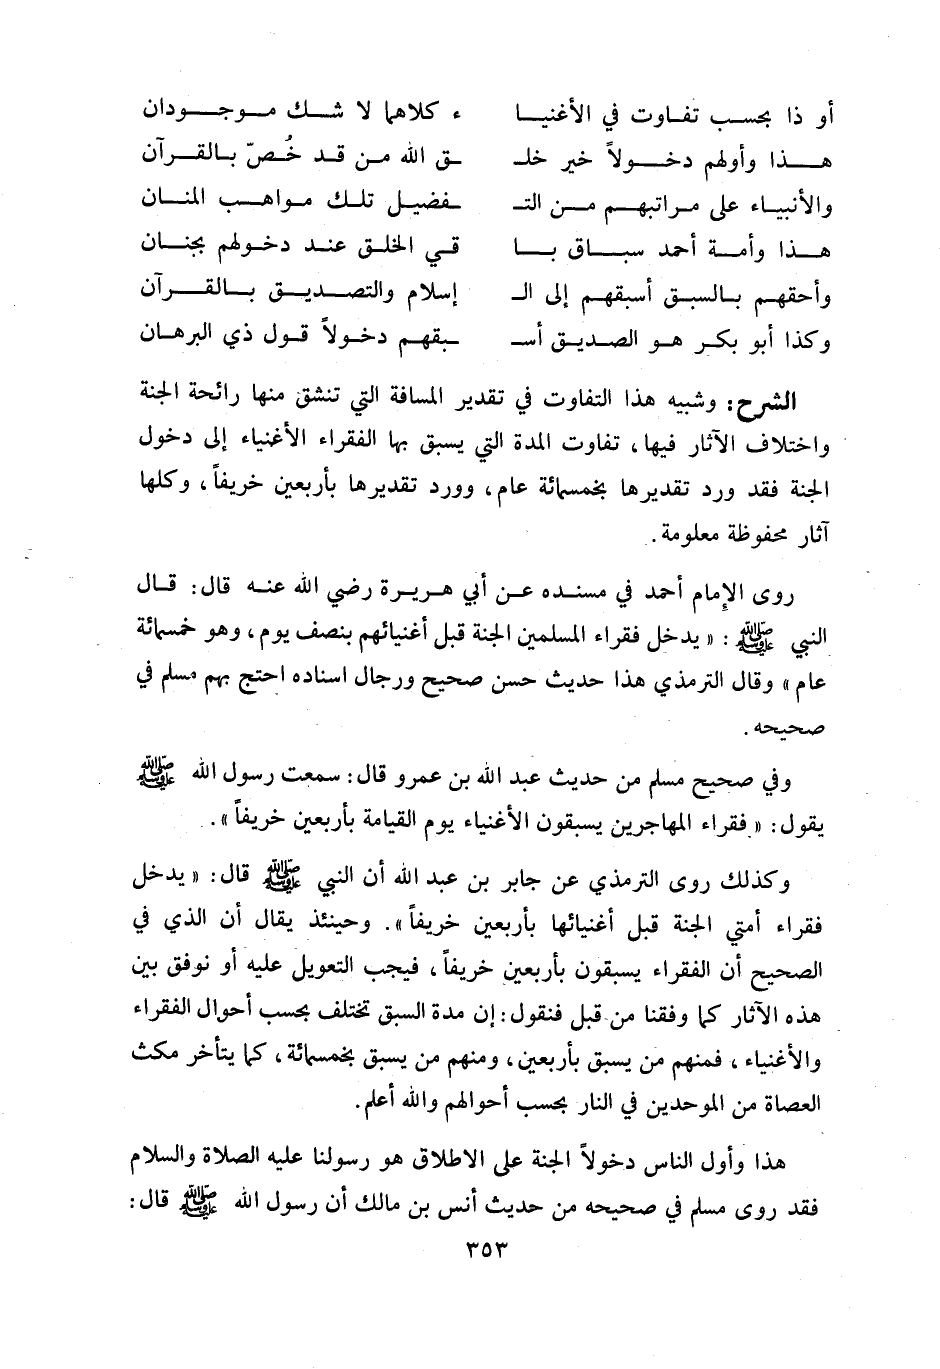 أو ذا بحسب تفاوت في الأغنيا ء كلاهما لا شك موجودان
هذا وأولهم دخولاً خير خلـ ـق الله من قد خُصّ بالقرآن
والأنبياء على مراتبهم من التـ ـفضيل تلك مواهب المنان
هذا وأمة أحمد سباق با قي الخلق عند دخولهم بجنان
وأحقهم بالسبق أسبقهم إلى الـ إسلام والتصديق بالقرآن
وكذا أبو بكر هو الصديق أسـ ـبقهم دخولاً قول ذي البرهان
الشرح: وشبيه هذا التفاوت في تقدير المسافة التي تنشق منها رائحة الجنة
واختلاف الآثار فيها، تفاوت المدة التي يسبق بها الفقراء الأغنياء إلى دخول
الجنة فقد ورد تقديرها بخمسمائة عام، وورد تقديرها بأربعين خريفاً، وكلها
آثار محفوظة معلومة.
روى الإمام أحمد في مسنده عن أبي هريرة رضي الله عنه قال: قال
النبي ﷺ: «يدخل فقراء المسلمين الجنة قبل أغنيائهم بنصف يوم، وهو خمسمائة
عام» وقال الترمذي هذا حديث حسن صحيح ورجال اسناده احتج بهم مسلم في
صحيحه.
وفي صحيح مسلم من حديث عبد الله بن عمرو قال: سمعت رسول الله ﷺ
يقول: «فقراء المهاجرين يسبقون الأغنياء يوم القيامة بأربعين خريفاً».
وكذلك روى الترمذي عن جابر بن عبد الله أن النبي ﷺ قال: «يدخل
فقراء أمتي الجنة قبل أغنيائها بأربعين خريفاً». وحينئذ يقال أن الذي في
الصحيح أن الفقراء يسبقون بأربعين خريفاً، فيجب التعويل عليه أو نوفق بين
هذه الآثار كما وفقنا من قبل فنقول: إن مدة السبق تختلف بحسب أحوال الفقراء
والأغنياء، فمنهم من يسبق بأربعين، ومنهم من يسبق بخمسمائة، كما يتأخر مكث
العصاة من الموحدين في النار بحسب أحوالهم والله أعلم.
هذا وأول الناس دخولاً الجنة على الاطلاق هو رسولنا عليه الصلاة والسلام
فقد روى مسلم في صحيحه من حديث أنس بن مالك أن رسول الله ﷺ قال:
٣٥٣